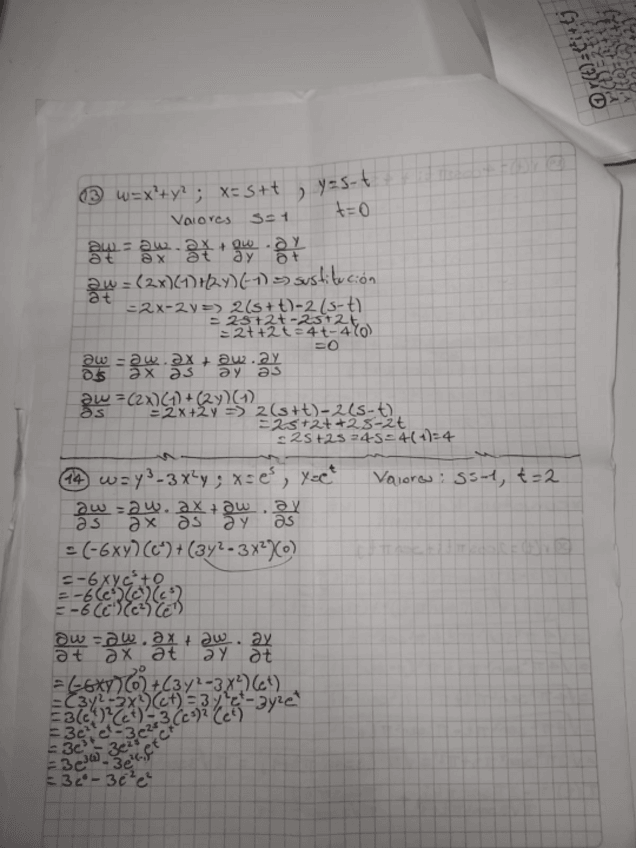 ① r(t)=ti+tj
⑬ w=x²+y² ; x=s+t , y=s-t
Valores s=1 t=0
∂w/∂t = ∂w/∂x · ∂x/∂t + ∂w/∂y · ∂y/∂t
∂w/∂t = (2x)(1)+(2y)(-1) => sustitución
=2x-2y => 2(s+t)-2(s-t)
= 2s+2t-2s+2t
=2t+2t=4t-4(0)
=0
∂w/∂s = ∂w/∂x · ∂x/∂s + ∂w/∂y · ∂y/∂s
∂w/∂s =(2x)(1)+(2y)(1)
=2x+2y => 2(s+t)-2(s-t)
=2s+2t+2s-2t
=2s+2s=4s=4(1)=4
⑭ w=y³-3x²y ; x=eˢ , y=eᵗ Valores: s=-1, t=2
∂w/∂s = ∂w/∂x · ∂x/∂s + ∂w/∂y · ∂y/∂s
=(-6xy)(eˢ)+(3y²-3x²)(0)
=-6xyeˢ+0
=-6(eˢ)(eᵗ)(eˢ)
=-6(e⁻¹)(e²)(e⁻¹)
∂w/∂t = ∂w/∂x · ∂x/∂t + ∂w/∂y · ∂y/∂t
=(-6xy)(0)+(3y²-3x²)(eᵗ)
=(3y²-3x²)(eᵗ)=3y²eᵗ-3y²eᵗ
=3(eᵗ)²(eᵗ)-3(eˢ)²(eᵗ)
=3e²ᵗeᵗ-3e²ˢeᵗ
=3e³ᵗ-3e²ˢeᵗ